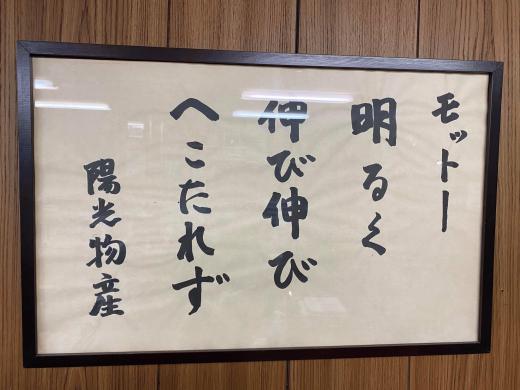 モットー
明るく
伸び伸び
へこたれず
陽光物産